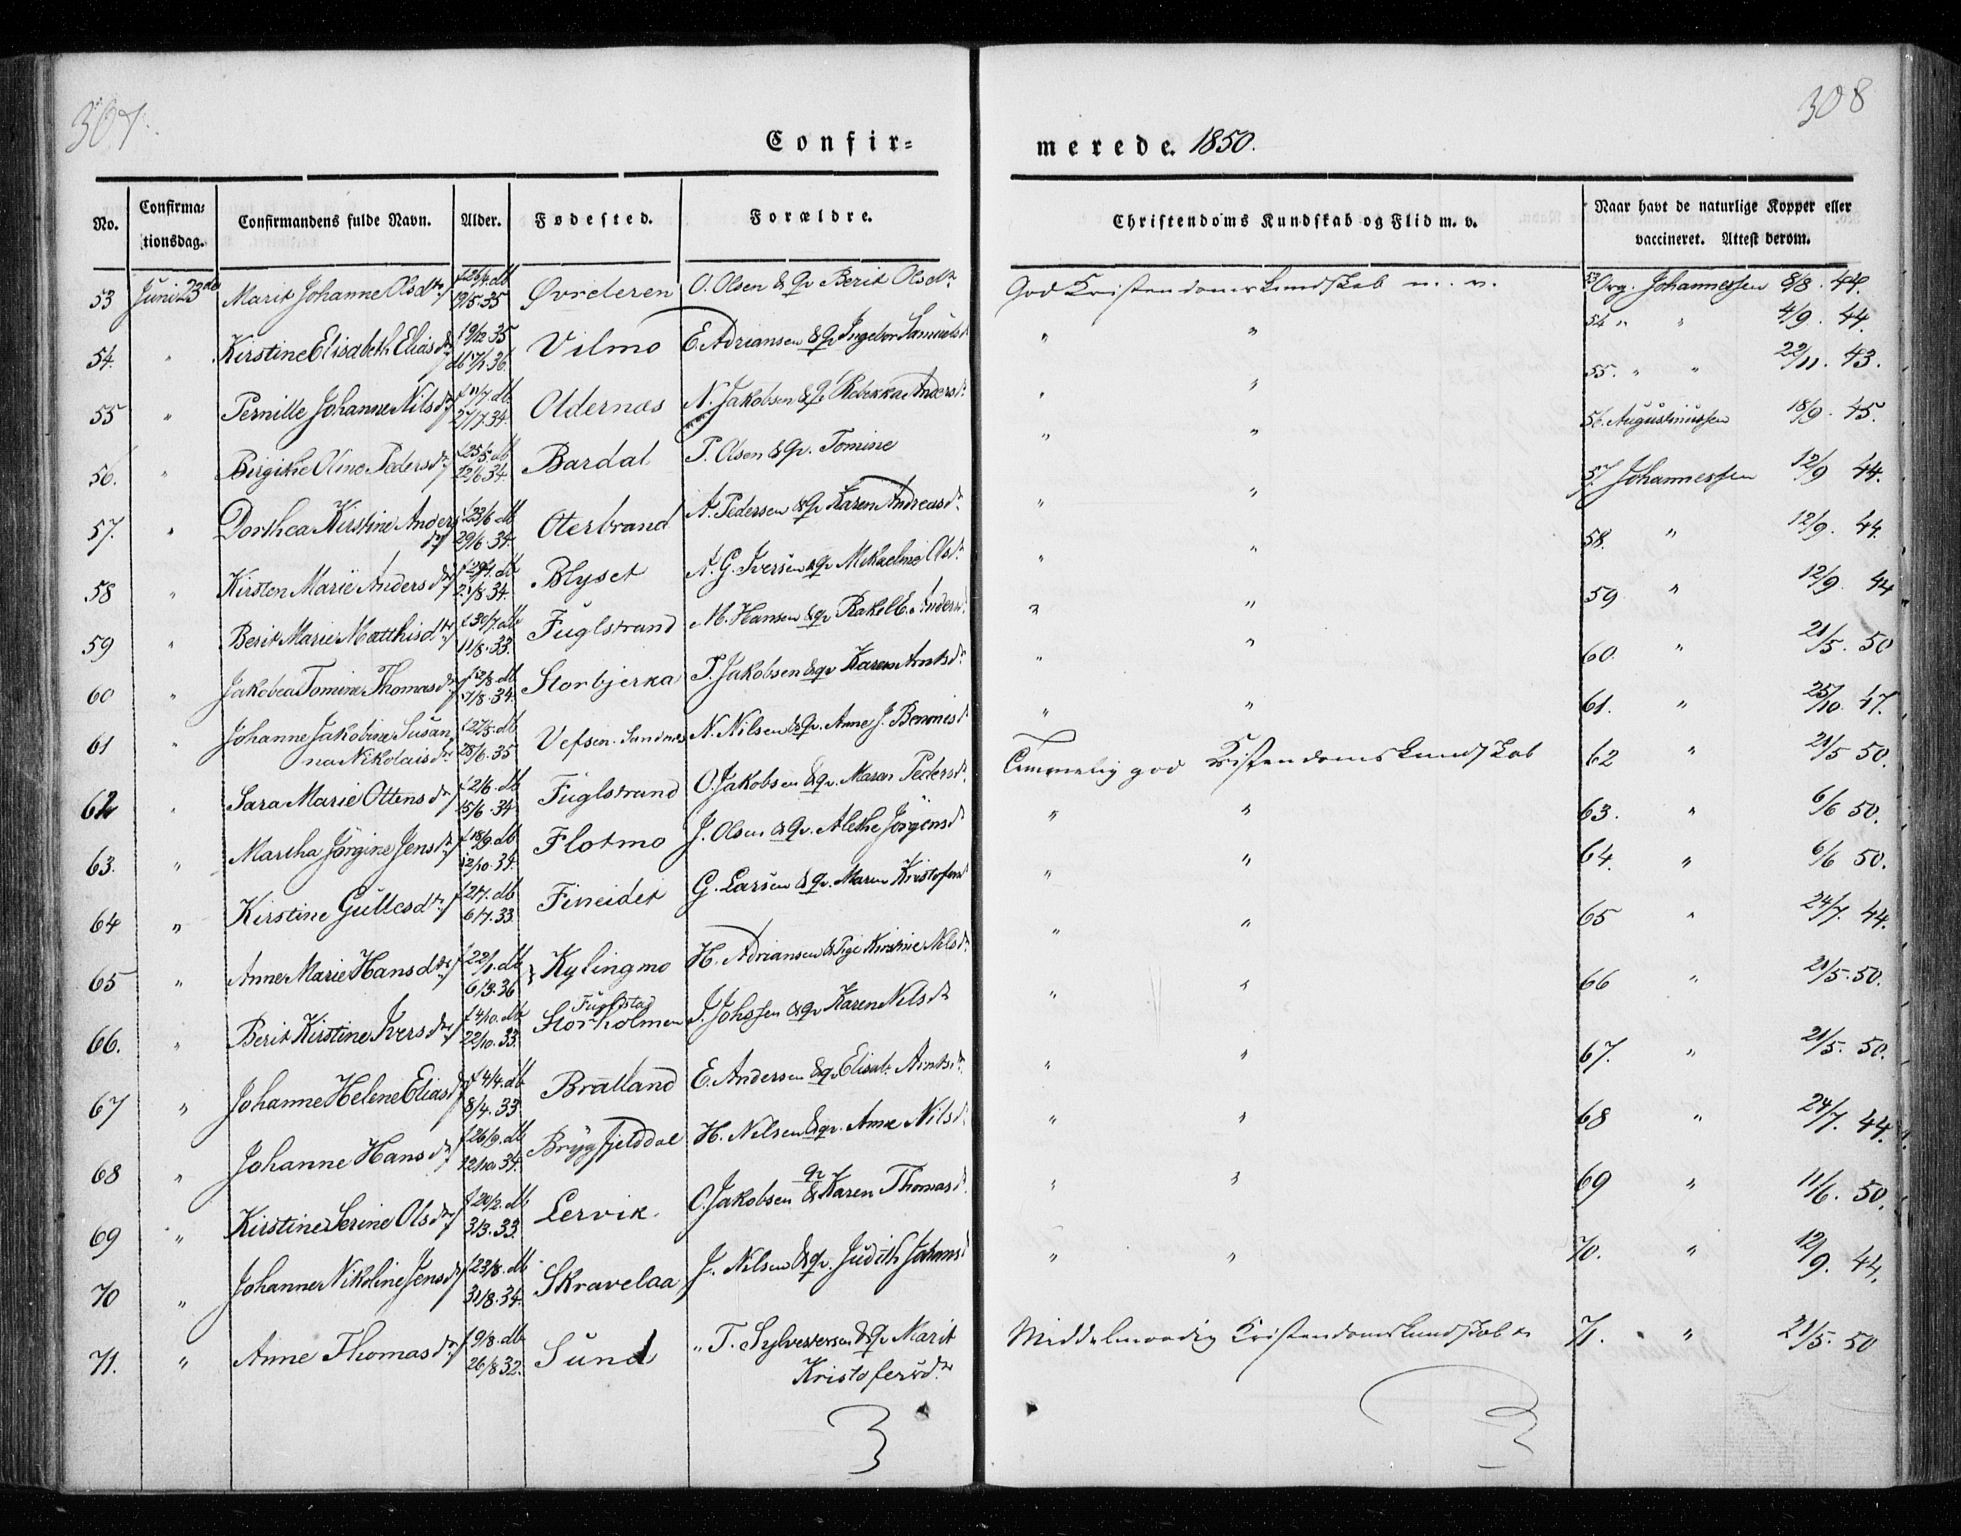 307.
308
Confir=
merede. 1850.
No. Confirmationsdag. Confirmandens fulde Navn. Alder. Fødested. Forældre. Christendoms Kundskab og Flid m. v. Naar havt de naturlige Kopper eller vaccineret. Attest derom.
53 Juni 23de Marit Johanne Olsdtr f 26/4. db 19/5. 35 Øvrederen O. Olsen & qv Berit Olsdtr God Kristendomskundskab m. v. 53 Org. Johannessen 8/8. 44.
54. " Kirstine Elisabeth Elias dtr 19/12 35 db 6/1 36. Vilmo E. Adriansen & qv Ingebor Samuelsd " " 54 " " 4/9. 44.
55 " Pernille Johanne Nilsdtr f 11/7. db 27/7. 34. Oldernæs N. Jakobsen & qv Rebekka Andersdr " " 55. " " 22/11. 43.
56. " Birgithe Olino Pedersdtr f 25/5. db 12/6 34. Bardal P. Olsen & qv. Tomine " " 56. Augustinussen 18/9. 45.
57. " Dorthea Kirstine Anders dtr f 23/6 db 29/6. 34. Oterbrand A. Pedersen & qv Karen Andreasdr " " 57. Johannessen 12/9 44.
58 " Kirsten Marie Andersdtr f 29/7. db 21/8. 34. Blyset A. G. Iversen & qv Mikaelma Olsdr " " 58. " 12/9. 44.
59 " Berit Marie Matthisdtr f 30/7. db 11/8. 33. Fuglstrand M. Hansen & qv Rakel E. Andersd " " 59 " 12/9 44
60 " Jakobea Tomine Thomasdtr f 12/8. db 17/8. 34. Storbjerka T. Jakobsen & qv Karen Arntsdr " " 60. " 21/5. 50
61 " Johanne Jakobine Susanna Nikolaisdtr f 27/5. db 28/6. 35 Vefsen. Sandnes N. Nilsen & qv. Anne J. Benonisd " " 61. " 25/10. 47.
62 " Sara Marie Ottensdtr f 2/6. db 15/6. 34 Fuglstrand O. Jakobsen & qv. Maren Pedersd Temmelig god Kristendomskundskab 62 " 21/5 50.
63. " Martha Jørgine Jensdtr f 18/9 db 12/10. 34. Flotmo J. Olsen & qv. Alethe Jörgensd " " 63. " 6/6 50.
64 " Kirstine Gullesdtr f 2/7. db 6/7. 33. Fineidet G. Larsen & qv. Maren Kristofersd " " 64. " 6/6 50.
65 " Anne Marie Hansdtr f 22/1. db 6/3. 36 Kylingmo H. Adriansen & Pige Kirstine Nilsdr " " 65 " 24/7. 44.
66. " Berit Kirstine Iversdtr f 4/10. db 22/10. 33. Fuglstad Storholmen I. Johssen & qv Karen Nilsdtr " " 66 " 21/5. 50.
67 " Johanne Helene Eliasdtr f 4/4. db 8/4. 33 Bratland E. Andersen & qv Elisab. Arntsdr " " 67. " 21/5. 50.
68 " Johanne Hansdtr f 26/9. db 12/10. 34. Brygfjelddal H. Nilsen & qv. Anne Nilsd " " 68 " 24/7. 44.
69 " Kirstine Serine Olsdtr f 20/2. db 3/3. 33. Lervik. O. Jakobsen & qv Karen Thomasdr " " 69 " 11/6. 50.
70 " Johanne Nikoline Jensdtr f 23/8. db 31/8. 34. Skravelaa J. Nilsen & qv. Judith " " 70. " 12/9. 44.
71. " Anne Thomasdtr f 9/8. db 26/8 32. Sund T. Sylvestersen & qv Marit Kristofersdtr Middelmaadig Kristendomskundskab 71. " 21/5. 50